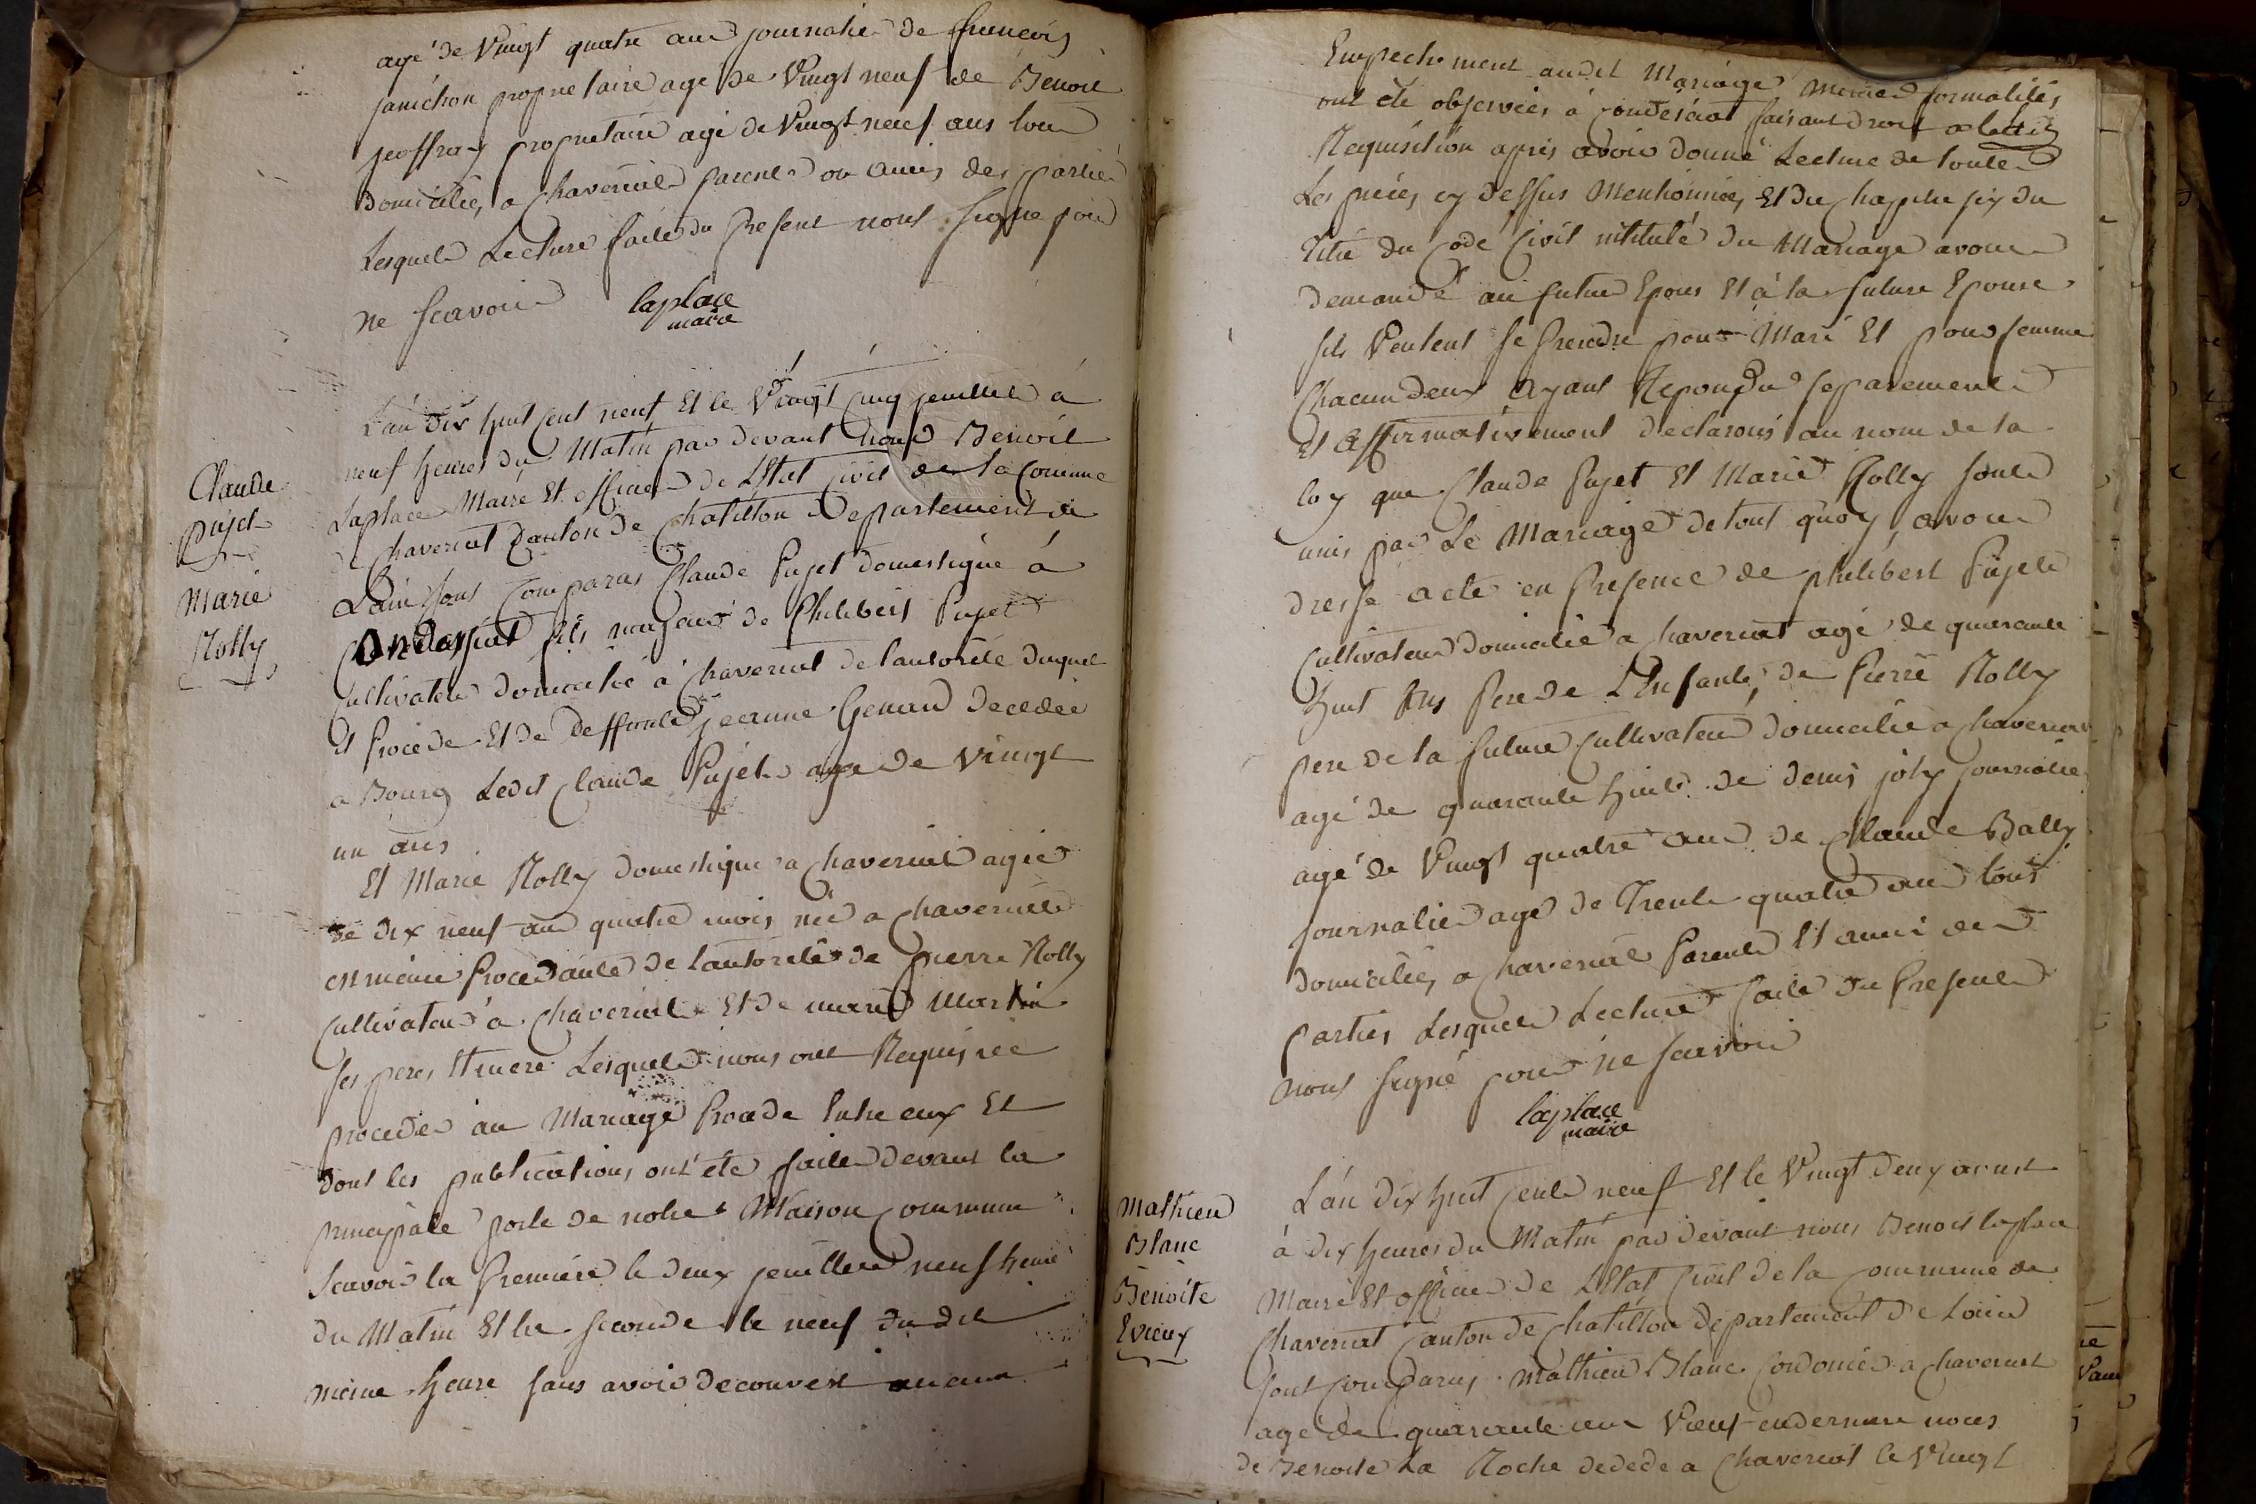 agé de Vingt quatre ans journalie de francois
janichon proprietaire age de Vingt neuf de Benoit
geoffray proprietaire agé de Vingt neuf ans tous
domicilies a Chaveriat parent ou amis des parties
Lesquels Lecture faite du present nont signe pour
ne scavoir laplace
maire
L'an dix huit cent neuf Et le Vingt cinq jeuillet á
neuf heures du Matin par devant nous Benoit
Laplace Maire Et officier de L'Etat Civil de la Comune
de Chaveriat Canton de Chatillon Departement de
L'ain sont Comparus Claude Pujet domestique á
Condessiat fils majeur de Philibert Pujet
Cultivateur domicilié á Chaveriat de l'autorité duquel
Il Procede Et de Deffunte jeanne Genard decedée
a Bourg Ledit Claude Pujet age de Vingt
un ans
Et Marie Rolly domestique a Chaveriat agée
de dix neuf an quatre mois née a Chaveriat
et même Procedante de l'autorité de pierre Rolly
Cultivateur á Chaveriat Et de marie Martin
ses peres Et mere Lesquels nous ont Requis de
proceder au Mariage Entre eux Et
dont les publications ont été faite devant la
principale porte de notre Maison Commune
Scavoir la Premiere le deux jeuillet neuf heure
du Matin Et la seconde le neuf du dit
même heure sans avoir decouvert aucun
Claude
pujet
Marie
Rolly
Empechement audit Mariage même formalités
ont été observées á Condessiat faisant droit a leur
Requisition apres avoir donné Lecture de toute
Les pieces cy dessus Mentionnées Et du Chapitre six du
Titre du Code Civil intitulé du Mariage avons
demandé au futur Epous Et á la future Epouse
sils Veulent se prendre pour Mari Et pour femme
Chacun deux ayant Repondu separement
Et affirmativement declarons au nom de la
loy que Claude Pujet Et Marie Rolly sont
unis par Le Mariage de tout quoy avons
dressé acte en Presence de philibert Pujet
Cultivateur domicilié a Chaveriat agé de quarante
huit ans Pere de L'Enfant, de Pierre Rolly
pere de la future Cultivateur domicilie a Chaveriat
agé de quarante huit de denis joly journalie
agé de Vingt quatre ans de Claude Bally
journalie agé de Trente quatre ans tous
domicilies a Chaveriat Parents Et amis des
parties Lesquels Lecture faite du Present
nont signé pour ne scavoir
laplace
maire
Mathieu
Blanc
Benoite
Evieux
L'an dix huit cent neuf Et le Vingt deux aoust
á dix heures du Matin par devant nous Benoit laplace
Maire Et officier de L'Etat Civil de la Commune de
Chaveriat Canton de Chatillon departement de Loin
sont Comparus Mathieu Blanc Cordonier a Chaveriat
agé de quarante un Veuf en derniere noces
de Benoite La Roche decede a Chaveriat le Vingt